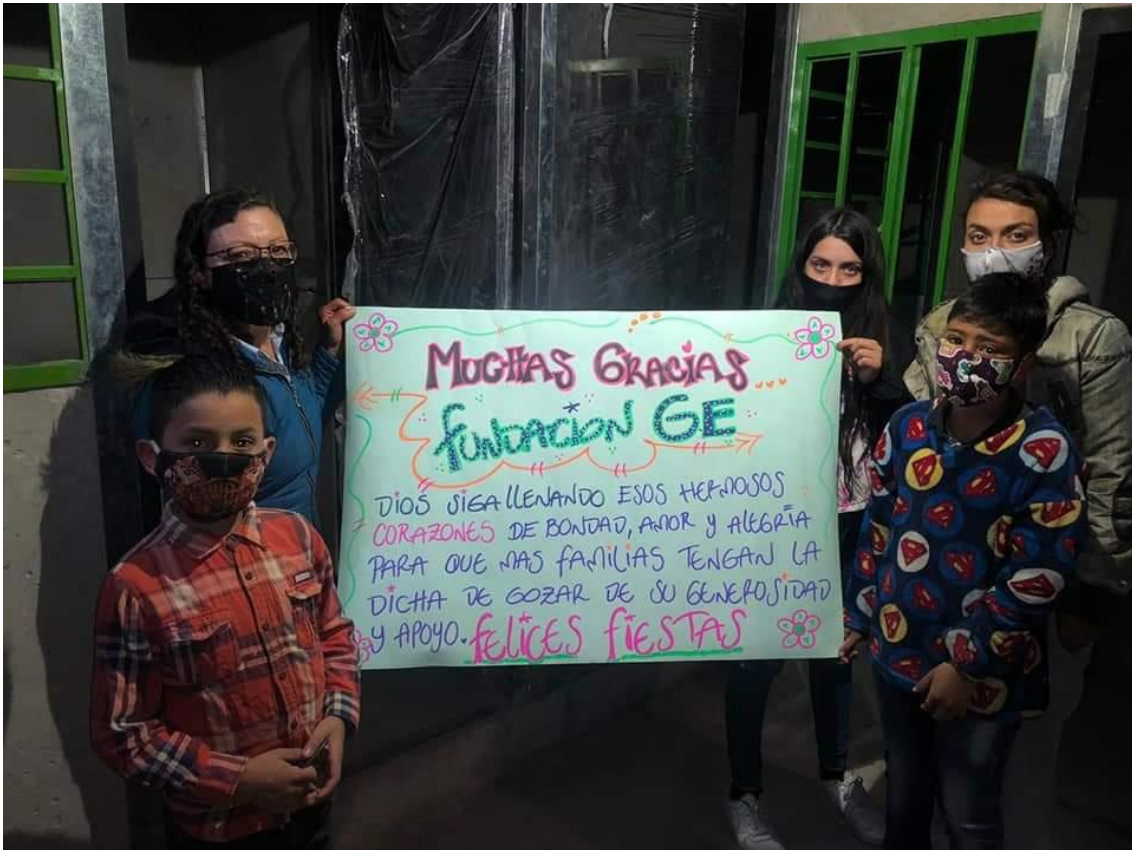 MUCHAS GRACIAS...
FUNDACIÓN GE
DIOS SIGA LLENANDO ESOS HERMOSOS
CORAZONES DE BONDAD, AMOR Y ALEGRÍA
PARA QUE MAS FAMILIAS TENGAN LA
DICHA DE GOZAR DE SU GENEROSIDAD
Y APOYO. FELICES FIESTAS